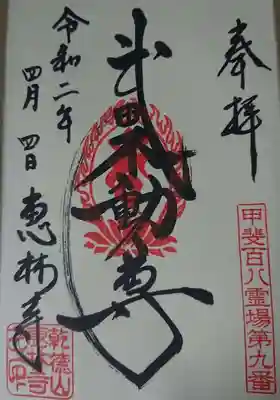 奉拝
甲斐百八霊場第九番
武田不動尊
令和二年
四月四日
恵林寺
乾徳山
恵林寺